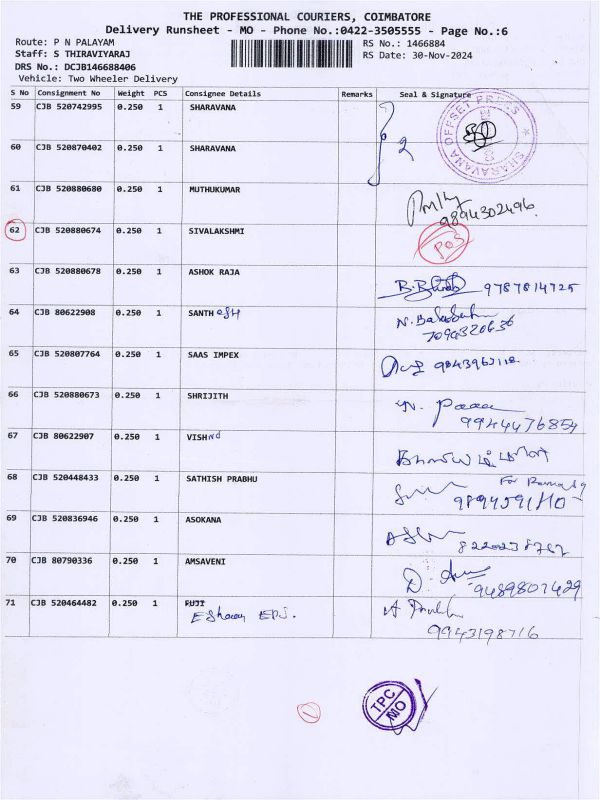 THE PROFESSIONAL COURIERS, COIMBATORE
Delivery Runsheet - MO - Phone No.:0422-3505555 - Page No.:6
Route: P N PALAYAM
RS No.: 1466884
Staff: S THIRAVIYARAJ
RS Date: 30-Nov-2024
DRS No.: DCJB146688406
Vehicle: Two Wheeler Delivery
S No Consignment No Weight PCS Consignee Details Remarks Seal & Signature
59 CJB 520742995 0.250 1 SHARAVANA
SHARAVANA OFFSET PRESS
60 CJB 520870402 0.250 1 SHARAVANA 2
61 CJB 520880680 0.250 1 MUTHUKUMAR
9894302496
62 CJB 520880674 0.250 1 SIVALAKSHMI POS
63 CJB 520880678 0.250 1 ASHOK RAJA 9787814725
64 CJB 80622908 0.250 1 SANTH osh
65 CJB 520807764 0.250 1 SAAS IMPEX
66 CJB 520880673 0.250 1 SHRIJITH
9944476854
67 CJB 80622907 0.250 1 VISHnd
68 CJB 520448433 0.250 1 SATHISH PRABHU For
69 CJB 520836946 0.250 1 ASOKANA
70 CJB 80790336 0.250 1 AMSAVENI
9489807429
71 CJB 520464482 0.250 1 FUJI
9943198716
TPC
MO
1